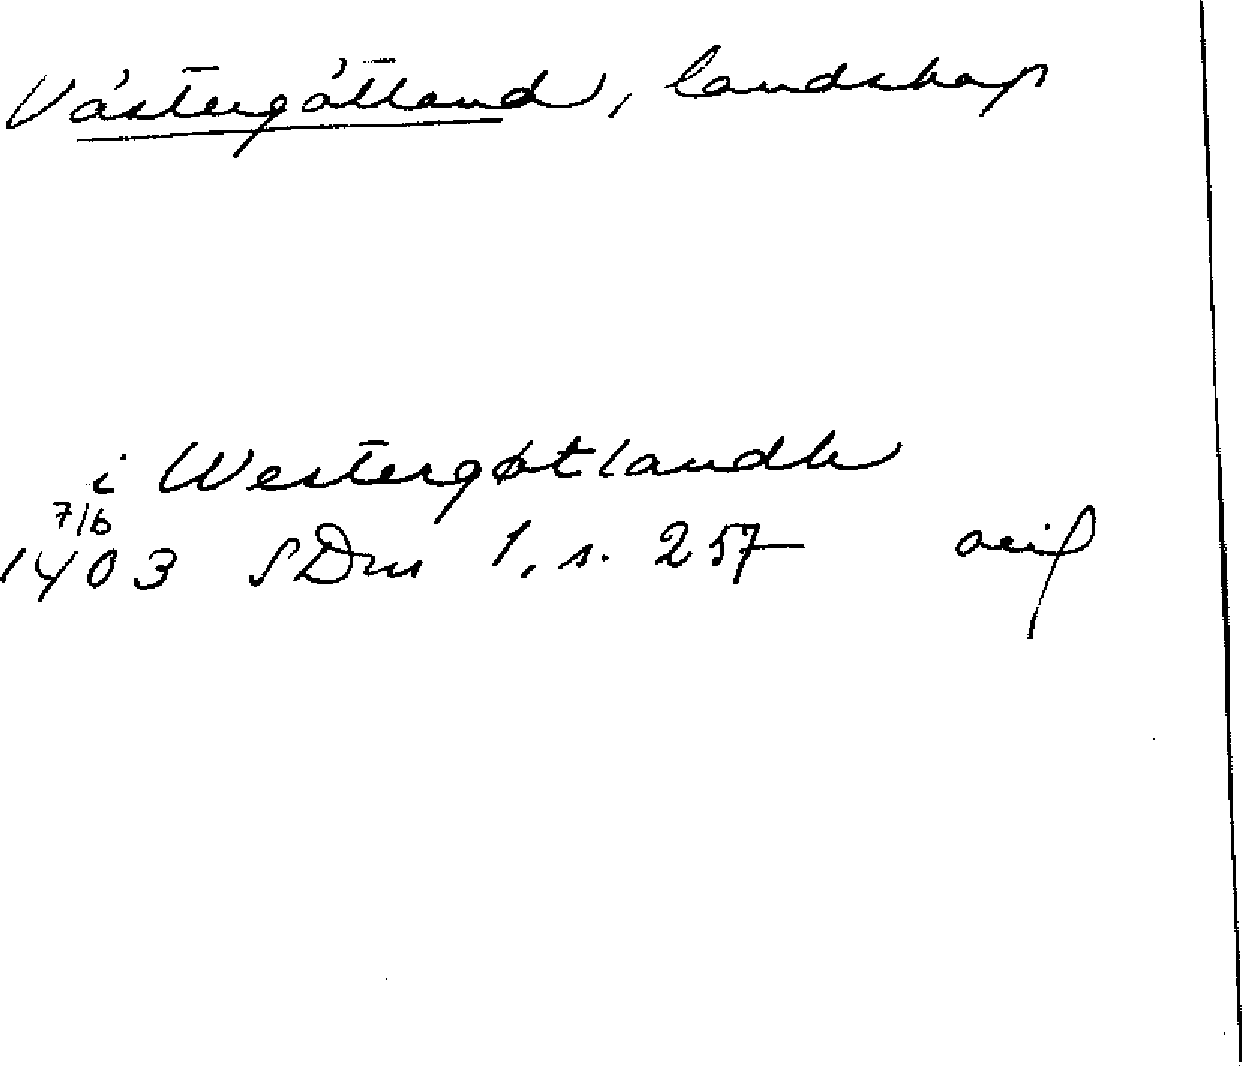 Västergötland, landskap
i Westergøtlandh
7/6
1403 SDns 1, s. 257 orig